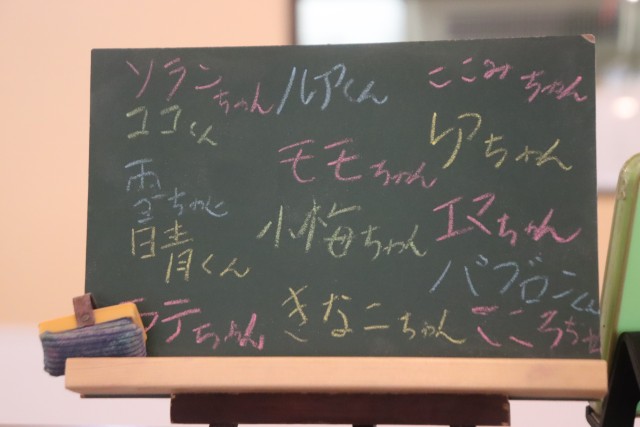 ソランちゃん
ココくん
雪ちゃん
晴くん
ラテちゃん
ルアくん
モモちゃん
小梅ちゃん
きなこちゃん
ここみちゃん
レアちゃん
エマちゃん
バブロンくん
こころちゃ